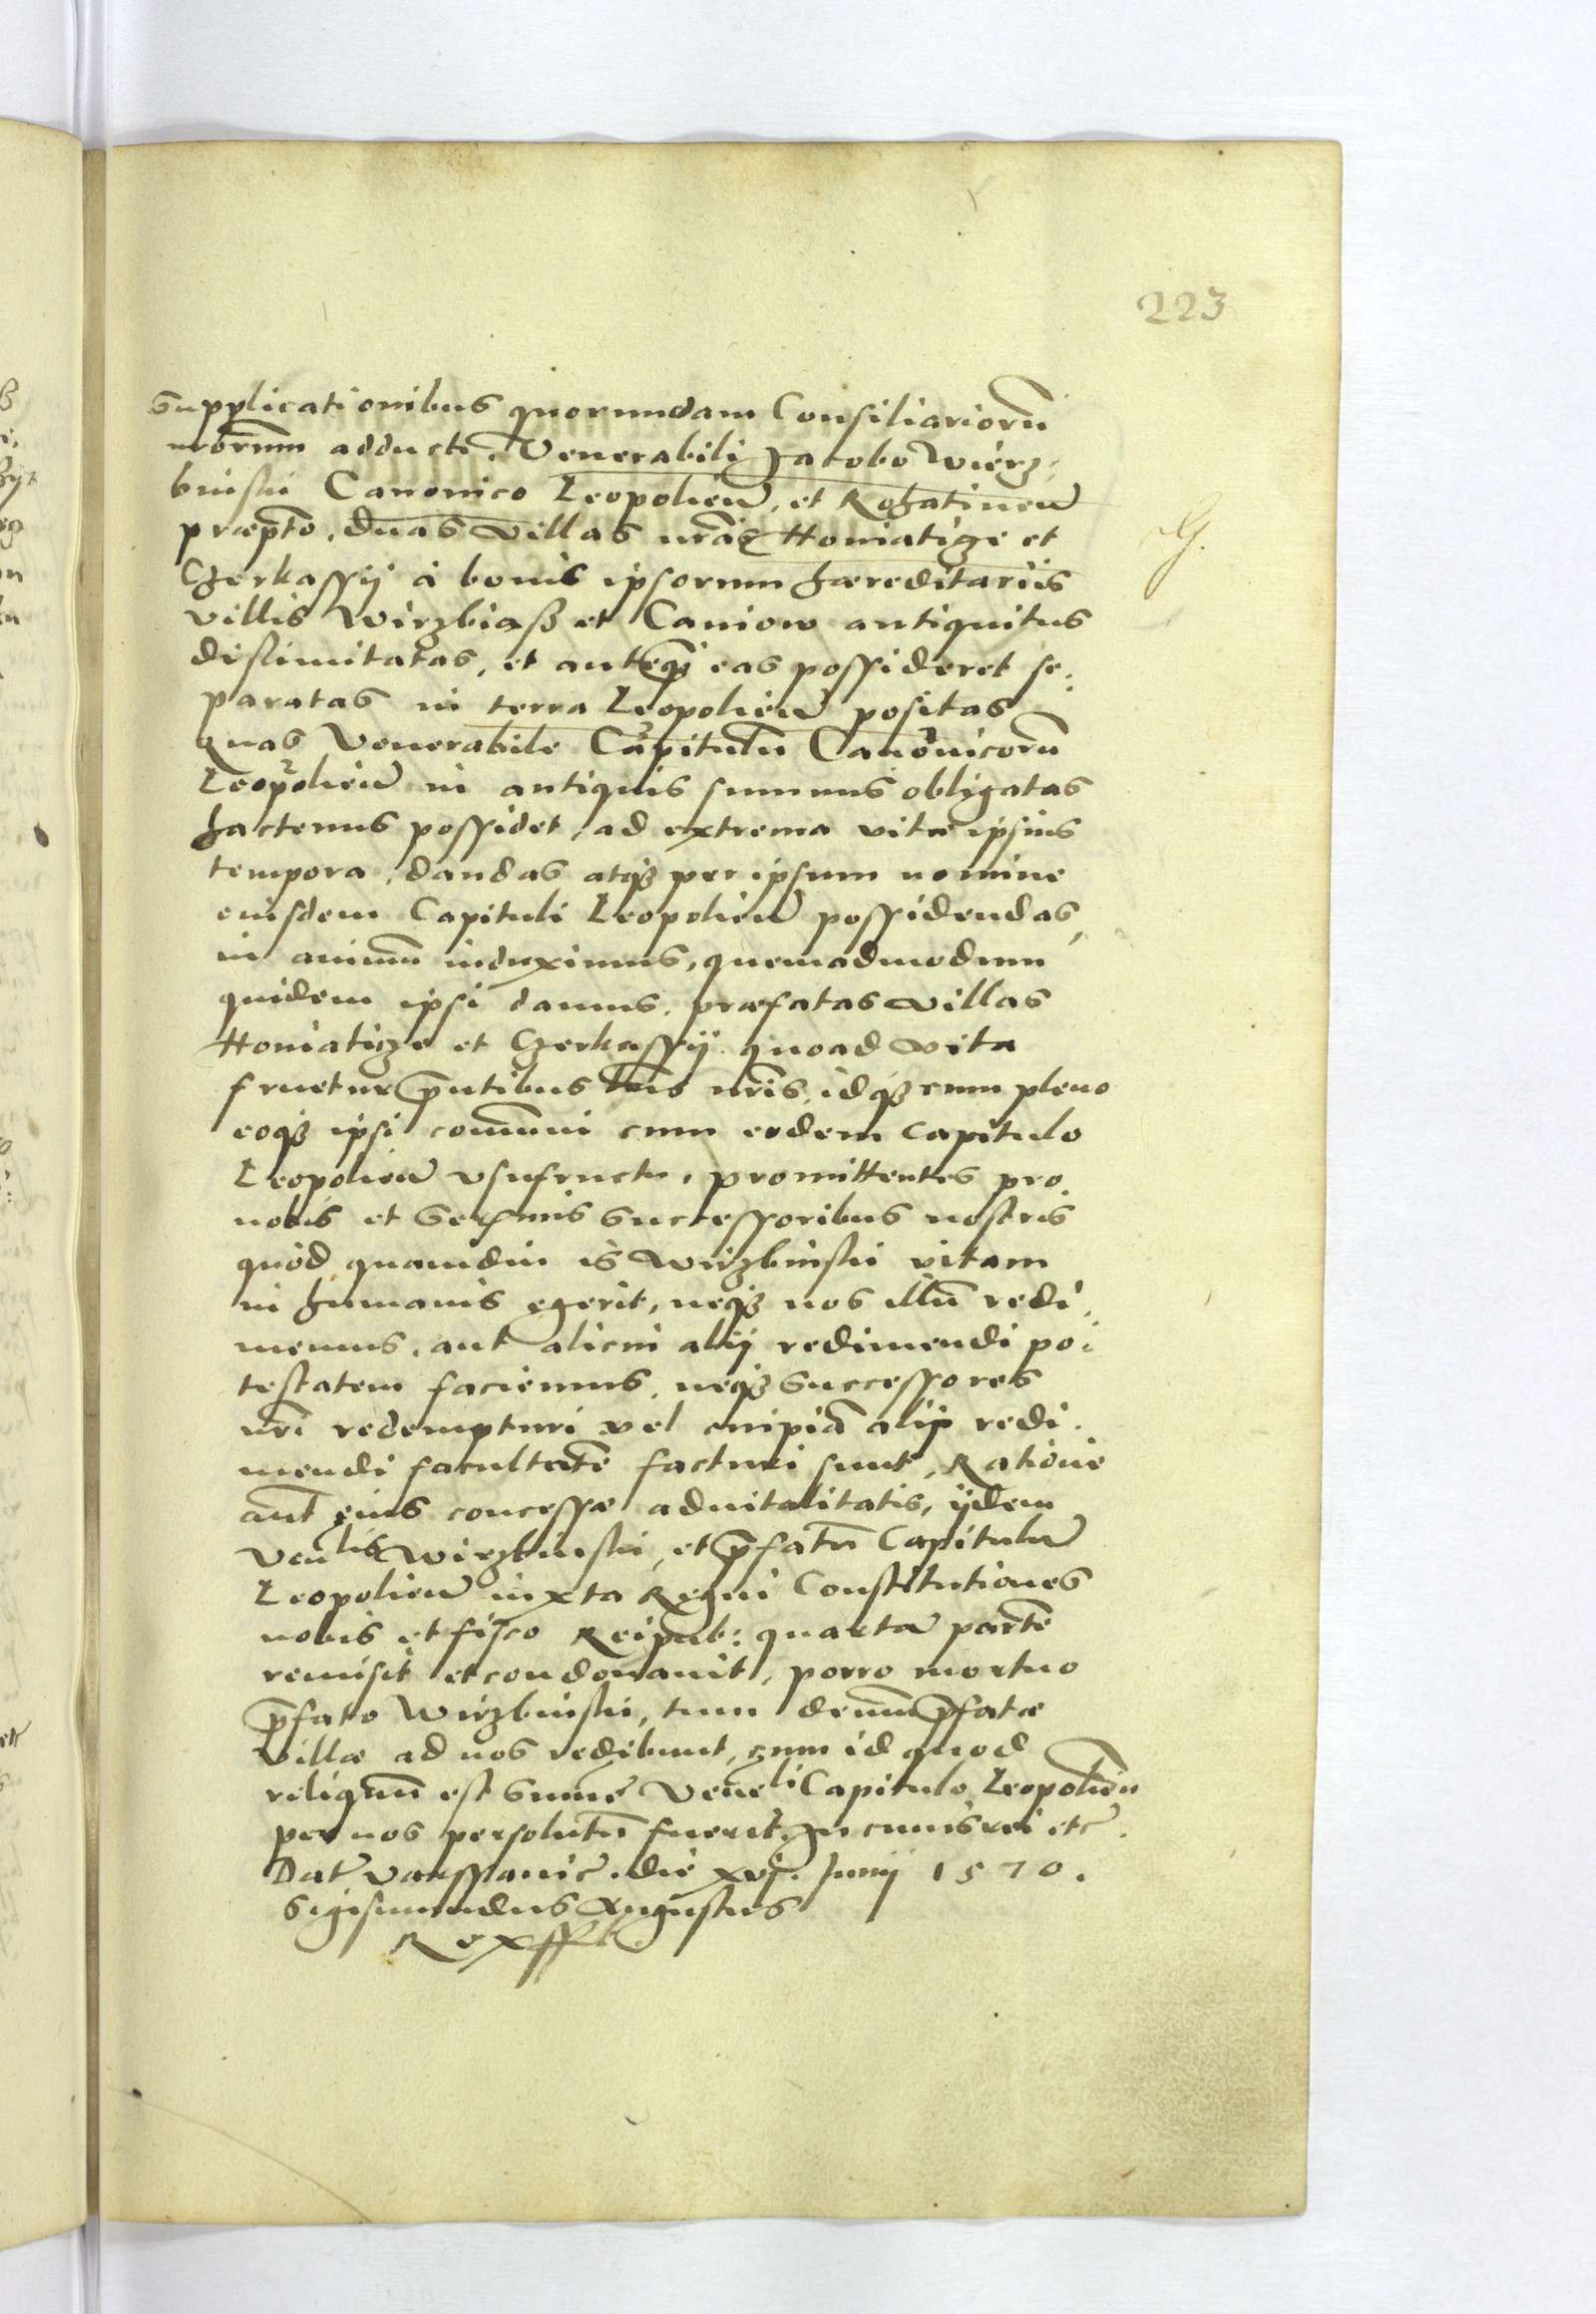 223
supplicationibus quorundam Consiliariorũ
nrorum adducti, Venerabili Jacobo Wierz-
binski Canonico Leopolieñ, et Rohatineñ
præpto, duas villas nrãs Honiaticze et
Czerkassÿ à bonis ipsorum hæreditariis
villis Wirzbiaß et Caniow antiquitus
dislimitatas, et anteq̃ eas possideret se-
paratas in terra Leopolieñ positas
quas Venerabile Capitulũ Canonicorũ
Leopolieñ in antiquis summis obligatas
hactenus possidet, ad extrema vitæ ipsius
tempora, dandas atqz per ipsum nomine
eiusdem Capituli Leopolieñ possidendas,
in animũ induximus, quemadmodum
quidem ipsi damus. præfatas villas
Honiaticze et Czerkassÿ quoad vita
fruetur p̃ntibus lris nris, idqz cum pleno
eoqz ipsi comũni cum eodem Capitulo
Leopolieñ vsufructu, promittentes pro
nobis et Sermis Successoribus nostris
quòd quamdiu is Wirzbinski vitam
in humanis egerit, neqz nos illũ redi-
memus, aut alicui alÿ redimendi po-
testatem faciemus, neqz Successores
nri redempturi vel cuipiã alÿ redi-
mendi facultatẽ facturi sunt, Ratione
aũt eius concessæ aduitalitatis, ÿdem
Venlis Wirzbinski, et p̃fatũ Capitulũ
Leopolieñ iuxta Regni Constitutiones
nobis et fisco Reipub: quartã partẽ
remisit et condonauit, porro mortuo
p̃fato Wirzbinski, tum demũ p̃fatæ
villæ ad nos redibunt, cum id quod
reliquũ est Summæ Veneli Capitulo Leopolieñ
per nos persolutũ fuerit. In cuius rei etc.
Dat Varssauiæ. die xvj. Junij 1570.
Sigismundus Augustus
Rex sst